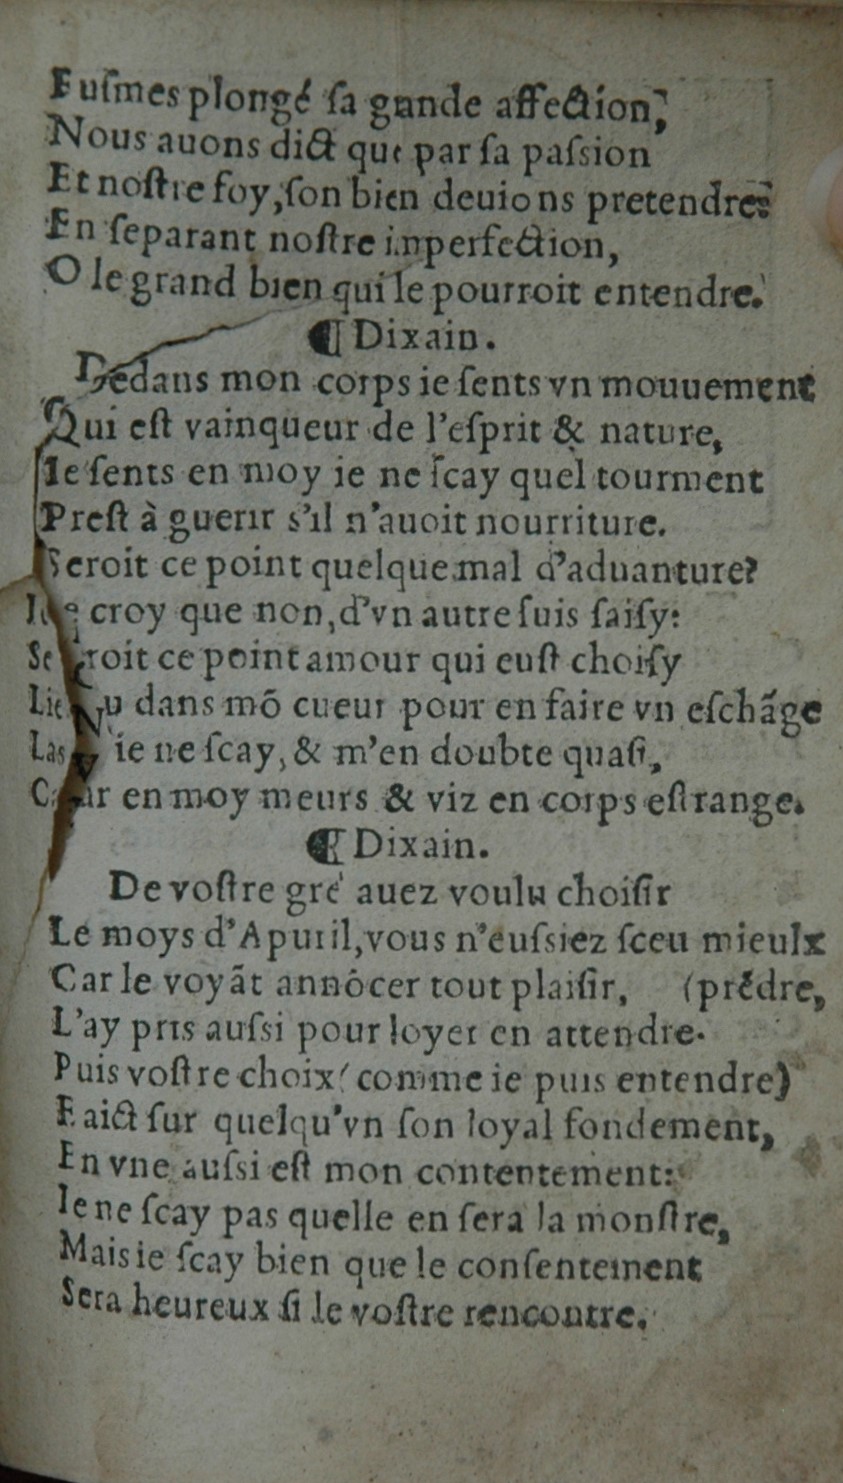 Fuſmes plongé ſa grande affection,
Nous auons dict que par ſa paſsion
Et noſtre foy, ſon bien deuions pretendre:
En ſeparant noſtre inperfection,
O le grand bien qui le pourroit entendre.
¶ Dixain.
Dedans mon corps ie ſents vn mouuement
Qui eſt vainqueur de l'eſprit & nature,
Ie ſents en moy ie ne ſcay quel tourment
Preſt à guerir s'il n'auoit nourriture.
Seroit ce point quelque mal d'aduanture?
croy que non, d'vn autre ſuis ſaiſy:
Seroit ce point amour qui euſt choiſy
Lieu dans mõ cueur pour en faire vn eſchãge
Las ie ne ſcay, & m'en doubte quaſi,
Car en moy meurs & viz en corps eſtrange.
¶ Dixain.
De voſtre gré auez voulu choiſir
Le moys d'Apuril, vous n'euſsiez ſceu mieulx
Car le voyãt annõcer tout plaiſir, (prẽdre,
L'ay pris auſsi pour loyer en attendre.
Puis voſtre choix (comme ie puis entendre)
Faict ſur quelqu'vn ſon loyal fondement,
En vne auſsi eſt mon contentement:
Ie ne ſcay pas quelle en ſera la monſtre,
Mais ie ſcay bien que le conſentement
Sera heureux ſi le voſtre rencontre.